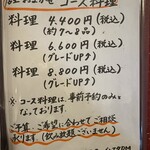 コース料理
料理 4.400円(税込)
(約7〜8品)
料理 6.600円(税込)
(グレードUP♪)
料理 8.800円(税込)
(グレードUP♪)
※コース料理は、事前予約のみと
なっております。
ご予算、ご希望に合わせてご相談
承ります(飲み放題ございません)